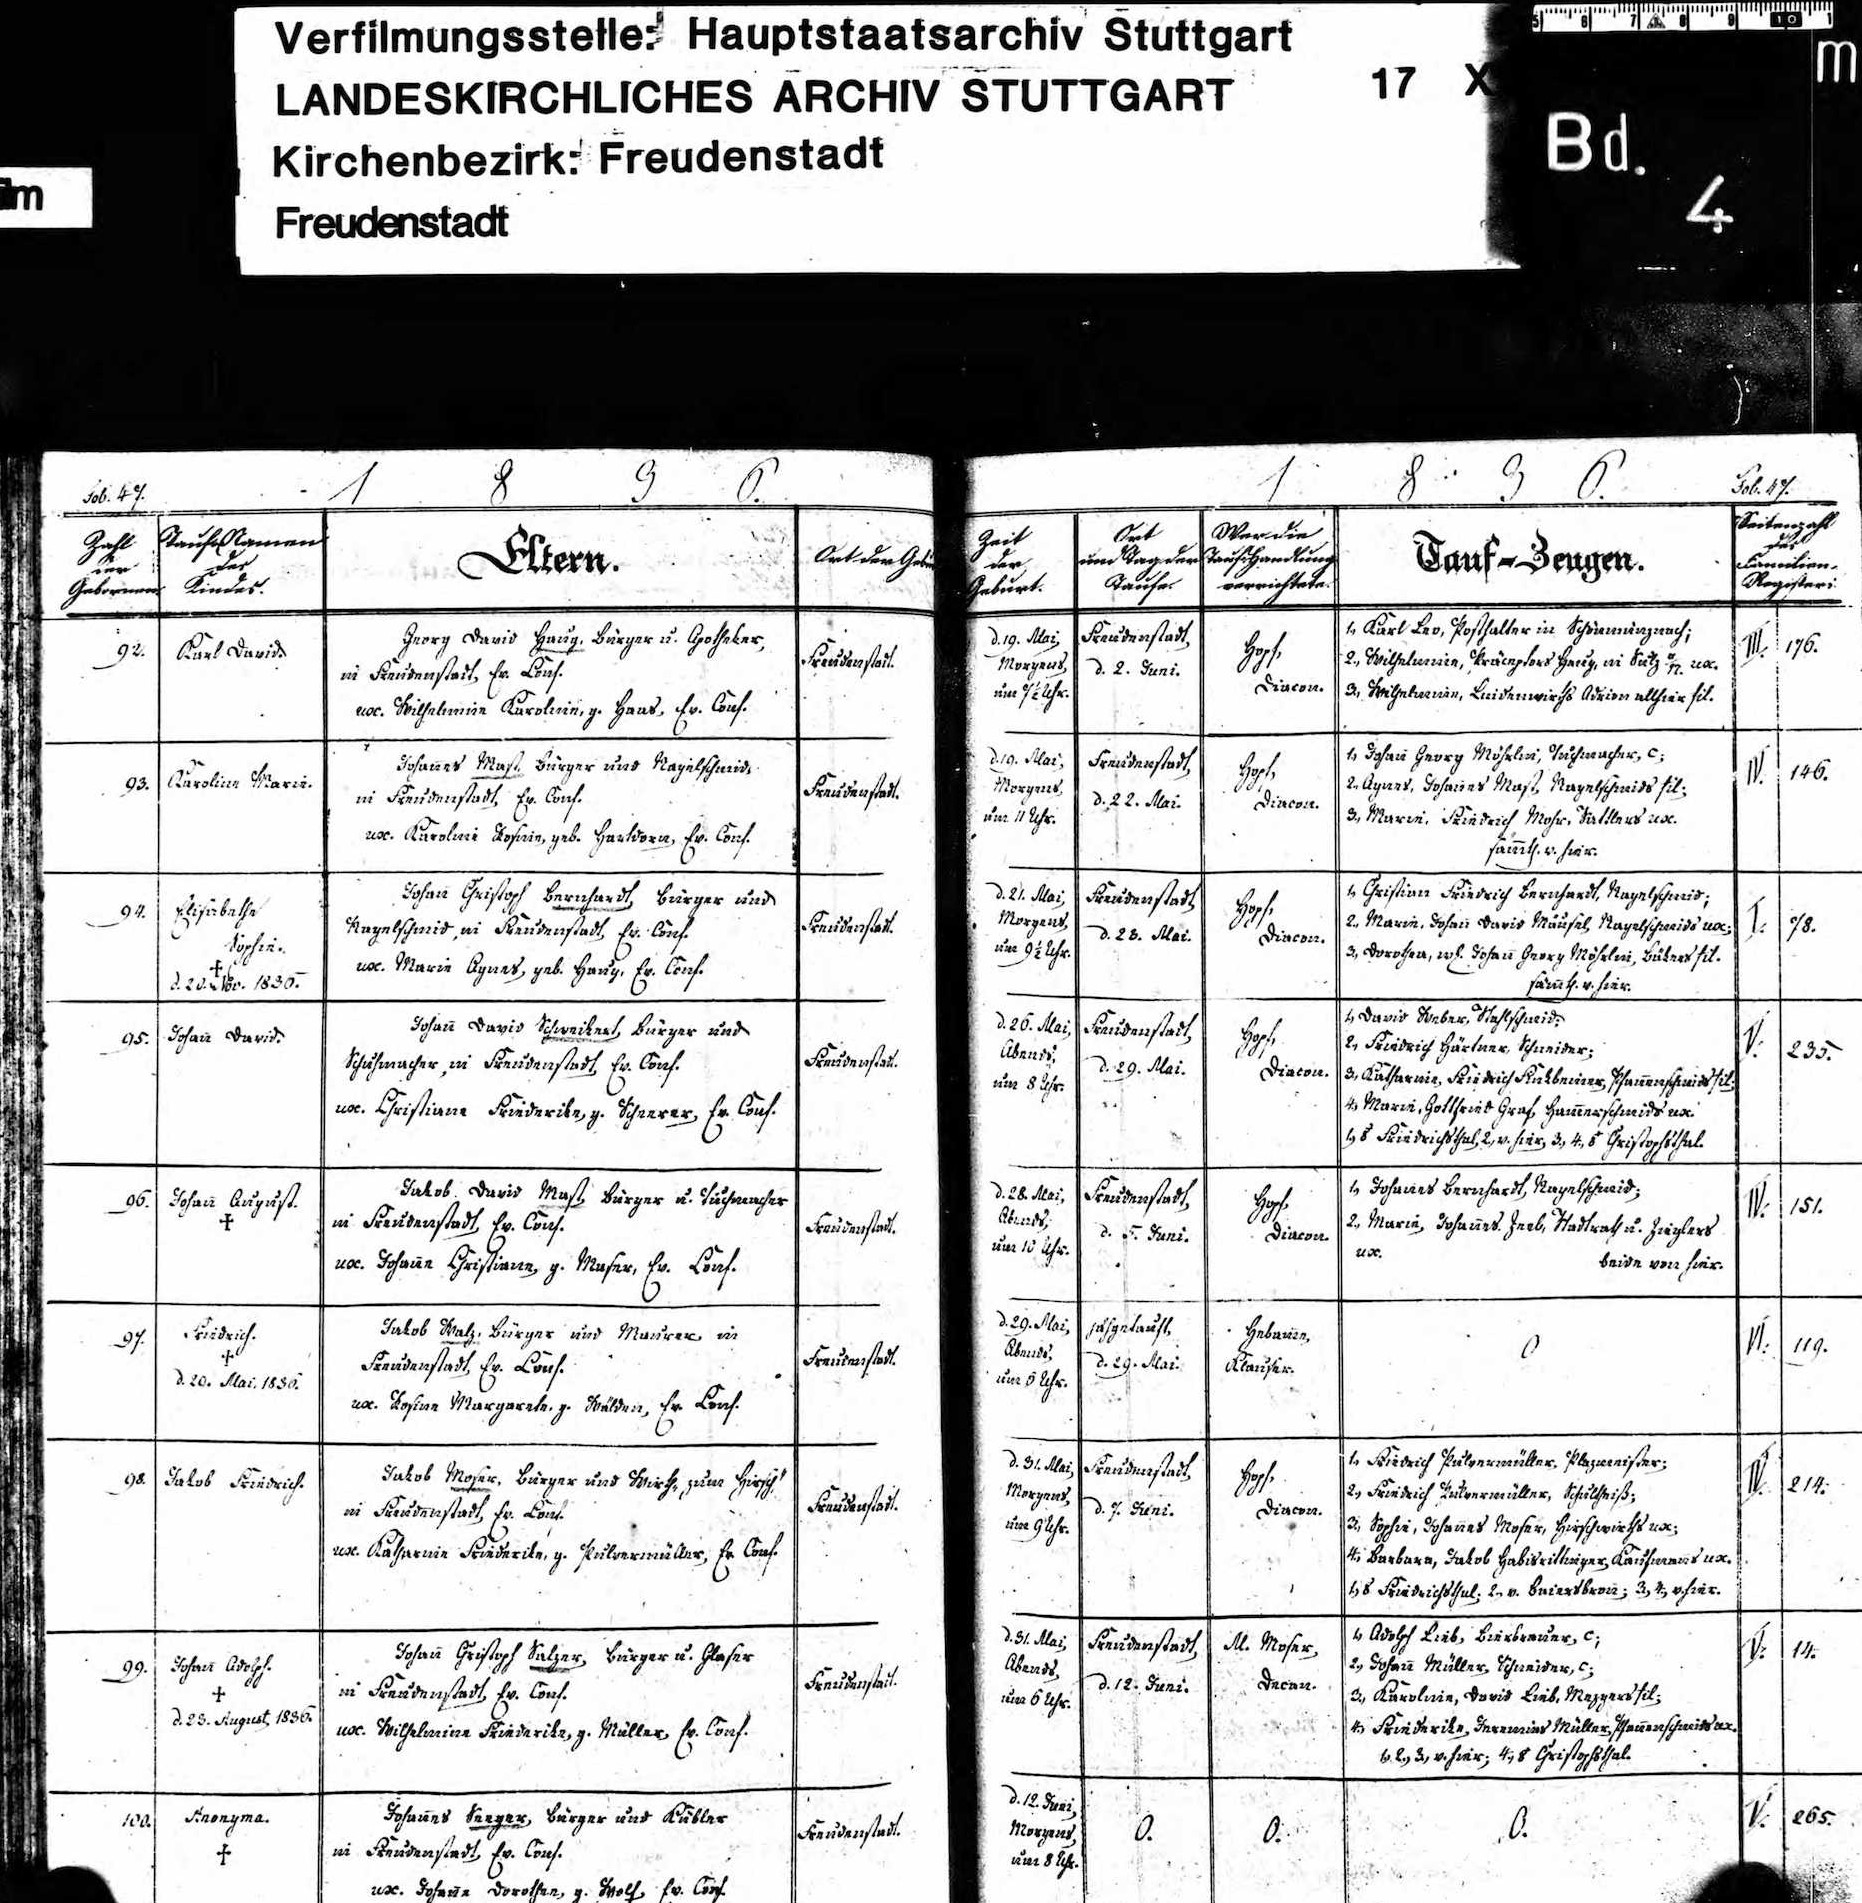 Verfilmungsstelle: Hauptstaatsarchiv Stuttgart
LANDESKIRCHLICHES ARCHIV STUTTGART 17 X
Kirchenbezirk: Freudenstadt
Freudenstadt
Bd.
4
m
5 6 7 8 9 10 1
Fol. 47.
1 8 3 6.
Zahl der Gebornen
Tauf-Namen des Kindes.
Eltern.
Ort der
92.
Karl David.
Georg David Haug, Bürger u. Apotheker,
in Freudenstadt, Ev. Conf.
ux. Wilhelmine Karoline, g. Haas, Ev. Conf.
Freudenstadt.
93.
Karoline Marie.
Johannes Mast, Bürger und Nagelschmid,
in Freudenstadt, Ev. Conf.
ux. Karoline Rosine, geb. Hartdorn, Ev. Conf.
Freudenstadt.
94.
Elisabethe
Sophie.
†
Johann Christoph Bernhardt, Bürger und
Nagelschmid, in Freudenstadt, Ev. Conf.
ux. Marie Agnes, geb. Haug, Ev. Conf.
Freudenstadt.
95.
Johann David.
Johann David Schweikert, Bürger und
Schuhmacher, in Freudenstadt, Ev. Conf.
ux. Christiane Friederike, g. Scheerer, Ev. Conf.
Freudenstadt.
96.
Johann August.
†
Jakob David Mast, Bürger u. Tuchmacher
in Freudenstadt, Ev. Conf.
ux. Johanne Christiane, g. Moser, Ev. Conf.
Freudenstadt.
97.
Friedrich.
†
Jakob Walz, Bürger und Maurer, in
Freudenstadt, Ev. Conf.
ux. Rosine Margarete, g. Wälden, Ev. Conf.
Freudenstadt.
98.
Jakob Friedrich.
Jakob Moser, Bürger und Wirth, zum Hirsch
in Freudenstadt, Ev. Conf.
ux. Katharine Friederike, g. Pulvermüller, Ev. Conf.
Freudenstadt.
99.
Johann Adolph.
†
d. 23. August 1836.
Johann Christoph Salzer, Bürger u. Glaser
in Freudenstadt, Ev. Conf.
ux. Wilhelmine Friederike, g. Müller, Ev. Conf.
Freudenstadt.
100.
Anonyma.
†
Johannes Seeger, Bürger und Kübler
in Freudenstadt, Ev. Conf.
ux. Johanne Dorothea, g. Wolf, Ev. Conf.
Freudenstadt.
1 8 3 6.
Fol. 47.
Zeit der Geburt.
Ort und Tag der Taufe.
Wer die Taufhandlung verrichtete.
Tauf-Zeugen.
Seitenzahl des Familien-Registers.
d. 19. Mai,
Morgens,
um 7½ Uhr.
Freudenstadt,
d. 2. Juni.
Hopf,
Diacon.
1, Karl Leo, Posthalter in Schönmünznach;
2, Wilhelmine, Präceptors Haug, in Sulz ux.
3, Wilhelmine, Lindenwirths Adrion allhier fil.
III. 176.
d. 19. Mai,
Morgens,
um 11 Uhr.
Freudenstadt,
d. 22. Mai.
Hopf,
Diacon.
1, Johann Georg Möhrlin, Tuchmacher, C;
2, Agnes, Johannes Mast, Nagelschmids fil;
3, Marie, Friedrich Mohr, Sattlers ux.
sämtl. v. hier.
IV. 146.
d. 21. Mai,
Morgens,
um 9½ Uhr.
Freudenstadt,
d. 23. Mai.
Hopf,
Diacon.
1, Christian Friedrich Bernhardt, Nagelschmid;
2, Marie, Johann David Mäusel, Nagelschmids ux;
3, Dorothea, Johann Georg Möhrlin, Bäkers fil.
sämtl. v. hier.
I. 78.
d. 26. Mai,
Abends,
um 8 Uhr.
Freudenstadt,
d. 29. Mai.
Hopf,
Diacon.
1, David Weber, Stahlschmid;
2, Friedrich Härtner, Schneider;
3, Katharine, Friedrich Finkbeiner, Pfannenschmids fil.
4, Marie, Gottfried Graf, Hammerschmids ux.
1, Friedrichsthal, 2, v. hier, 3, 4, Christophsthal.
V. 235.
d. 28. Mai,
Abends,
um 10 Uhr.
Freudenstadt,
d. 5. Juni.
Hopf,
Diacon.
1, Johannes Bernhardt, Nagelschmid;
2, Marie, Johannes Zeeb, Stadtrath u. Zieglers
ux. beide von hier.
IV. 151.
d. 29. Mai,
Abends,
Freudenstadt
jähgetauft,
d. 29. Mai.
Hebamme,
Klauser.
0
VI. 119.
d. 31. Mai,
Morgens,
um 9 Uhr.
Freudenstadt,
d. 7. Juni.
Hopf,
Diacon.
1, Friedrich Pulvermüller, Plazmeister;
2, Friedrich Pulvermüller, Schultheiß;
3, Sophie, Johannes Moser, Hirschwirths ux;
4, Barbara, Jakob Habisreitinger, Kaufmanns ux.
1, Friedrichsthal; 2, v. Baiersbronn; 3, 4, v. hier.
IV. 214.
d. 31. Mai,
Abends,
um 6 Uhr.
Freudenstadt,
d. 12. Juni.
M. Moser,
Decan.
1, Adolph Lieb, Bierbrauer, C;
2, Johann Müller, Schneider, C;
3, Karoline, David Lieb, Mezgers fil;
4, Friederike, Jeremias Müller, Pfannenschmids ux.
1, 2, 3, v. hier; 4, Christophsthal.
V. 14.
d. 12. Juni,
Morgens,
um 8 Uhr.
0.
0.
0.
V. 265.